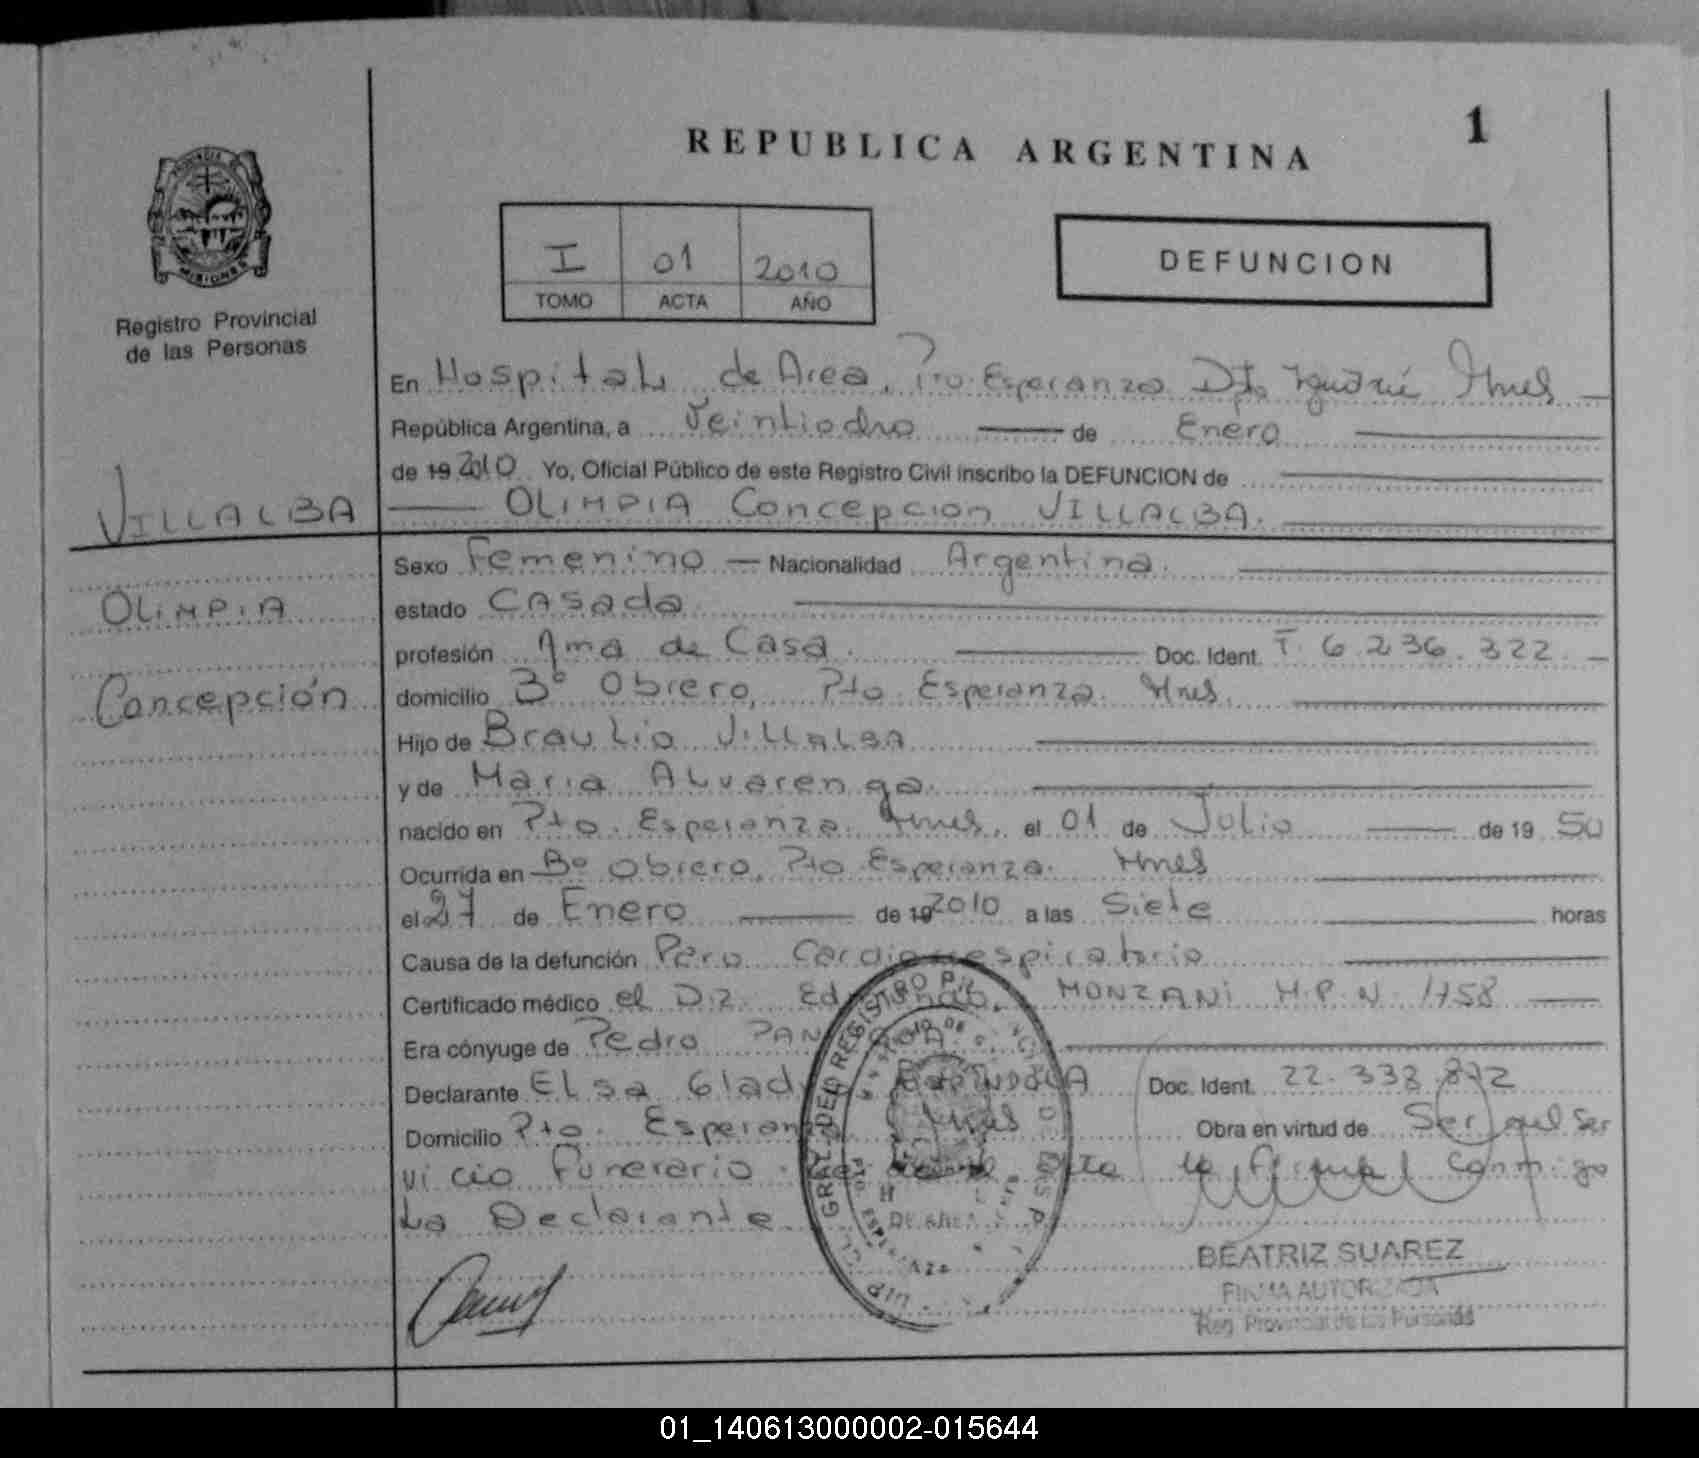 1
REPUBLICA ARGENTINA
PROVINCIA DE
MISIONES
Registro Provincial
de las Personas
I 01 2010
TOMO ACTA AÑO
DEFUNCION
En Hospital de Area, Pto. Esperanza Dpto Iguazú Mnes
República Argentina, a Veintiocho de Enero
de 19 2010 Yo, Oficial Público de este Registro Civil inscribo la DEFUNCION de
VILLALBA
OLIMPIA Concepcion VILLALBA.
Sexo Femenino Nacionalidad Argentina.
OLIMPIA
estado CASADA
profesión Ama de Casa. Doc. Ident. F. 6.236.322.
Concepción
domicilio Bº Obrero, Pto. Esperanza. Mnes.
Hijo de Braulio VILLALBA
y de Maria ALvarenga.
nacido en Pto. Esperanza. Mnes, el 01 de Julio de 19 50
Ocurrida en Bº Obrero, Pto Esperanza. Mnes
el 27 de Enero de 19 2010 a las Siete horas
Causa de la defunción Paro Cardiorespiratorio
Certificado médico el Dr. MONZANI M.P.N. 1758
Era cónyuge de Pedro
Declarante ELsa Gladys Doc. Ident.
Domicilio Pto. Esperanza Mnes Obra en virtud de Ser del Ser
vicio Funerario. la Firma Conmigo
La Declarante
BEATRIZ SUAREZ
FIRMA AUTORIZADA
Reg. Provincial de las Personas
01_140613000002-015644